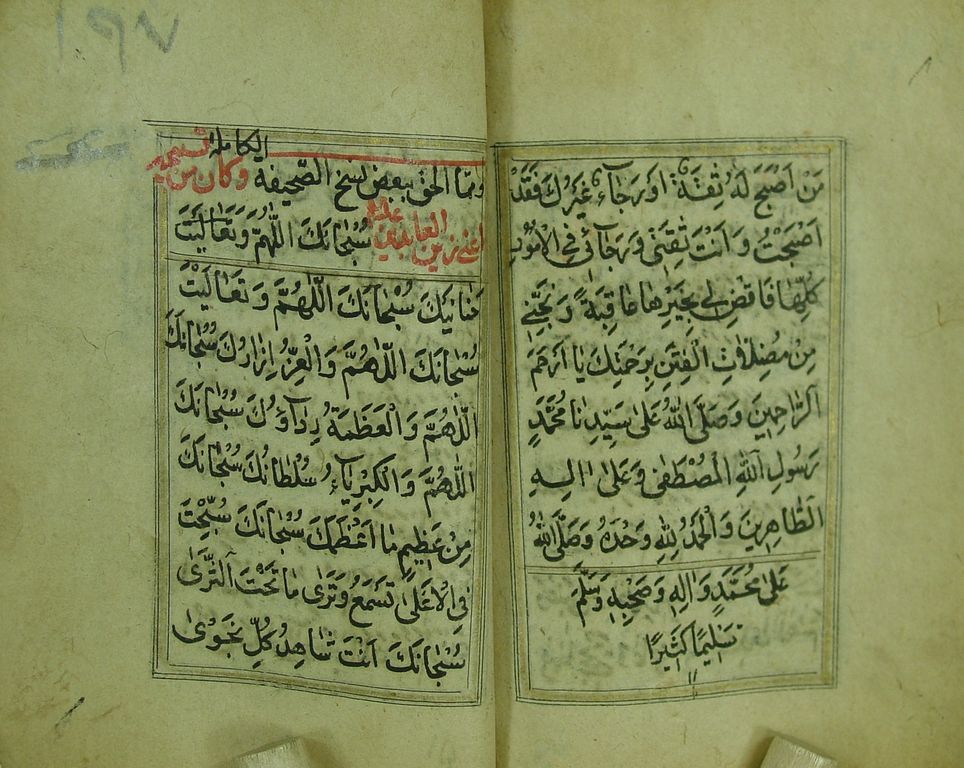 مَنْ اَصْبَحَ لَهُ ثِقَةٌ اَوْ رَجَآءٌ غَيْرُكَ فَقَدْ
اَصْبَحْتُ وَاَنْتَ ثِقَتِيْ وَرَجَآئِيْ فِي الْاُمُوْرِ
كُلِّهَا فَاقْضِ لِيْ بِخَيْرِهَا عَاقِبَةً وَنَجِّنِيْ
مِنْ مُضِلَّاتِ الْفِتَنِ بِرَحْمَتِكَ يَا اَرْحَمَ
الرَّاحِمِيْنَ وَصَلَّى اللّٰهُ عَلٰى سَيِّدِنَا مُحَمَّدٍ
رَسُوْلِ اللّٰهِ الْمُصْطَفٰى وَعَلٰى اٰلِهِ
الطَّاهِرِيْنَ وَالْحَمْدُ لِلّٰهِ وَحْدَهُ وَصَلَّى اللّٰهُ
عَلٰى مُحَمَّدٍ وَاٰلِهِ وَصَحْبِهِ وَسَلَّمَ
تَسْلِيْمًا كَثِيْرًا
الكاملة تسبيحه
ومما الحق ببعض نسخ الصّحيفة وكان من
زين العابدين عليه سُبْحَانَكَ اللّٰهُمَّ وَتَعَالَيْتَ
حَنَانَيْكَ سُبْحَانَكَ اللّٰهُمَّ وَتَعَالَيْتَ
سُبْحَانَكَ اللّٰهُمَّ وَالْعِزُّ اِزَارُكَ سُبْحَانَكَ
اللّٰهُمَّ وَالْعَظَمَةُ رِدَآؤُكَ سُبْحَانَكَ
اللّٰهُمَّ وَالْكِبْرِيَآءُ سُلْطَانُكَ سُبْحَانَكَ
مِنْ عَظِيْمٍ مَا اَعْظَمَكَ سُبْحَانَكَ سُبِّحْتَ
فِي الْاَعْلٰى تَسْمَعُ وَتَرٰى مَا تَحْتَ الثَّرٰى
سُبْحَانَكَ اَنْتَ شَاهِدُ كُلِّ نَجْوٰى